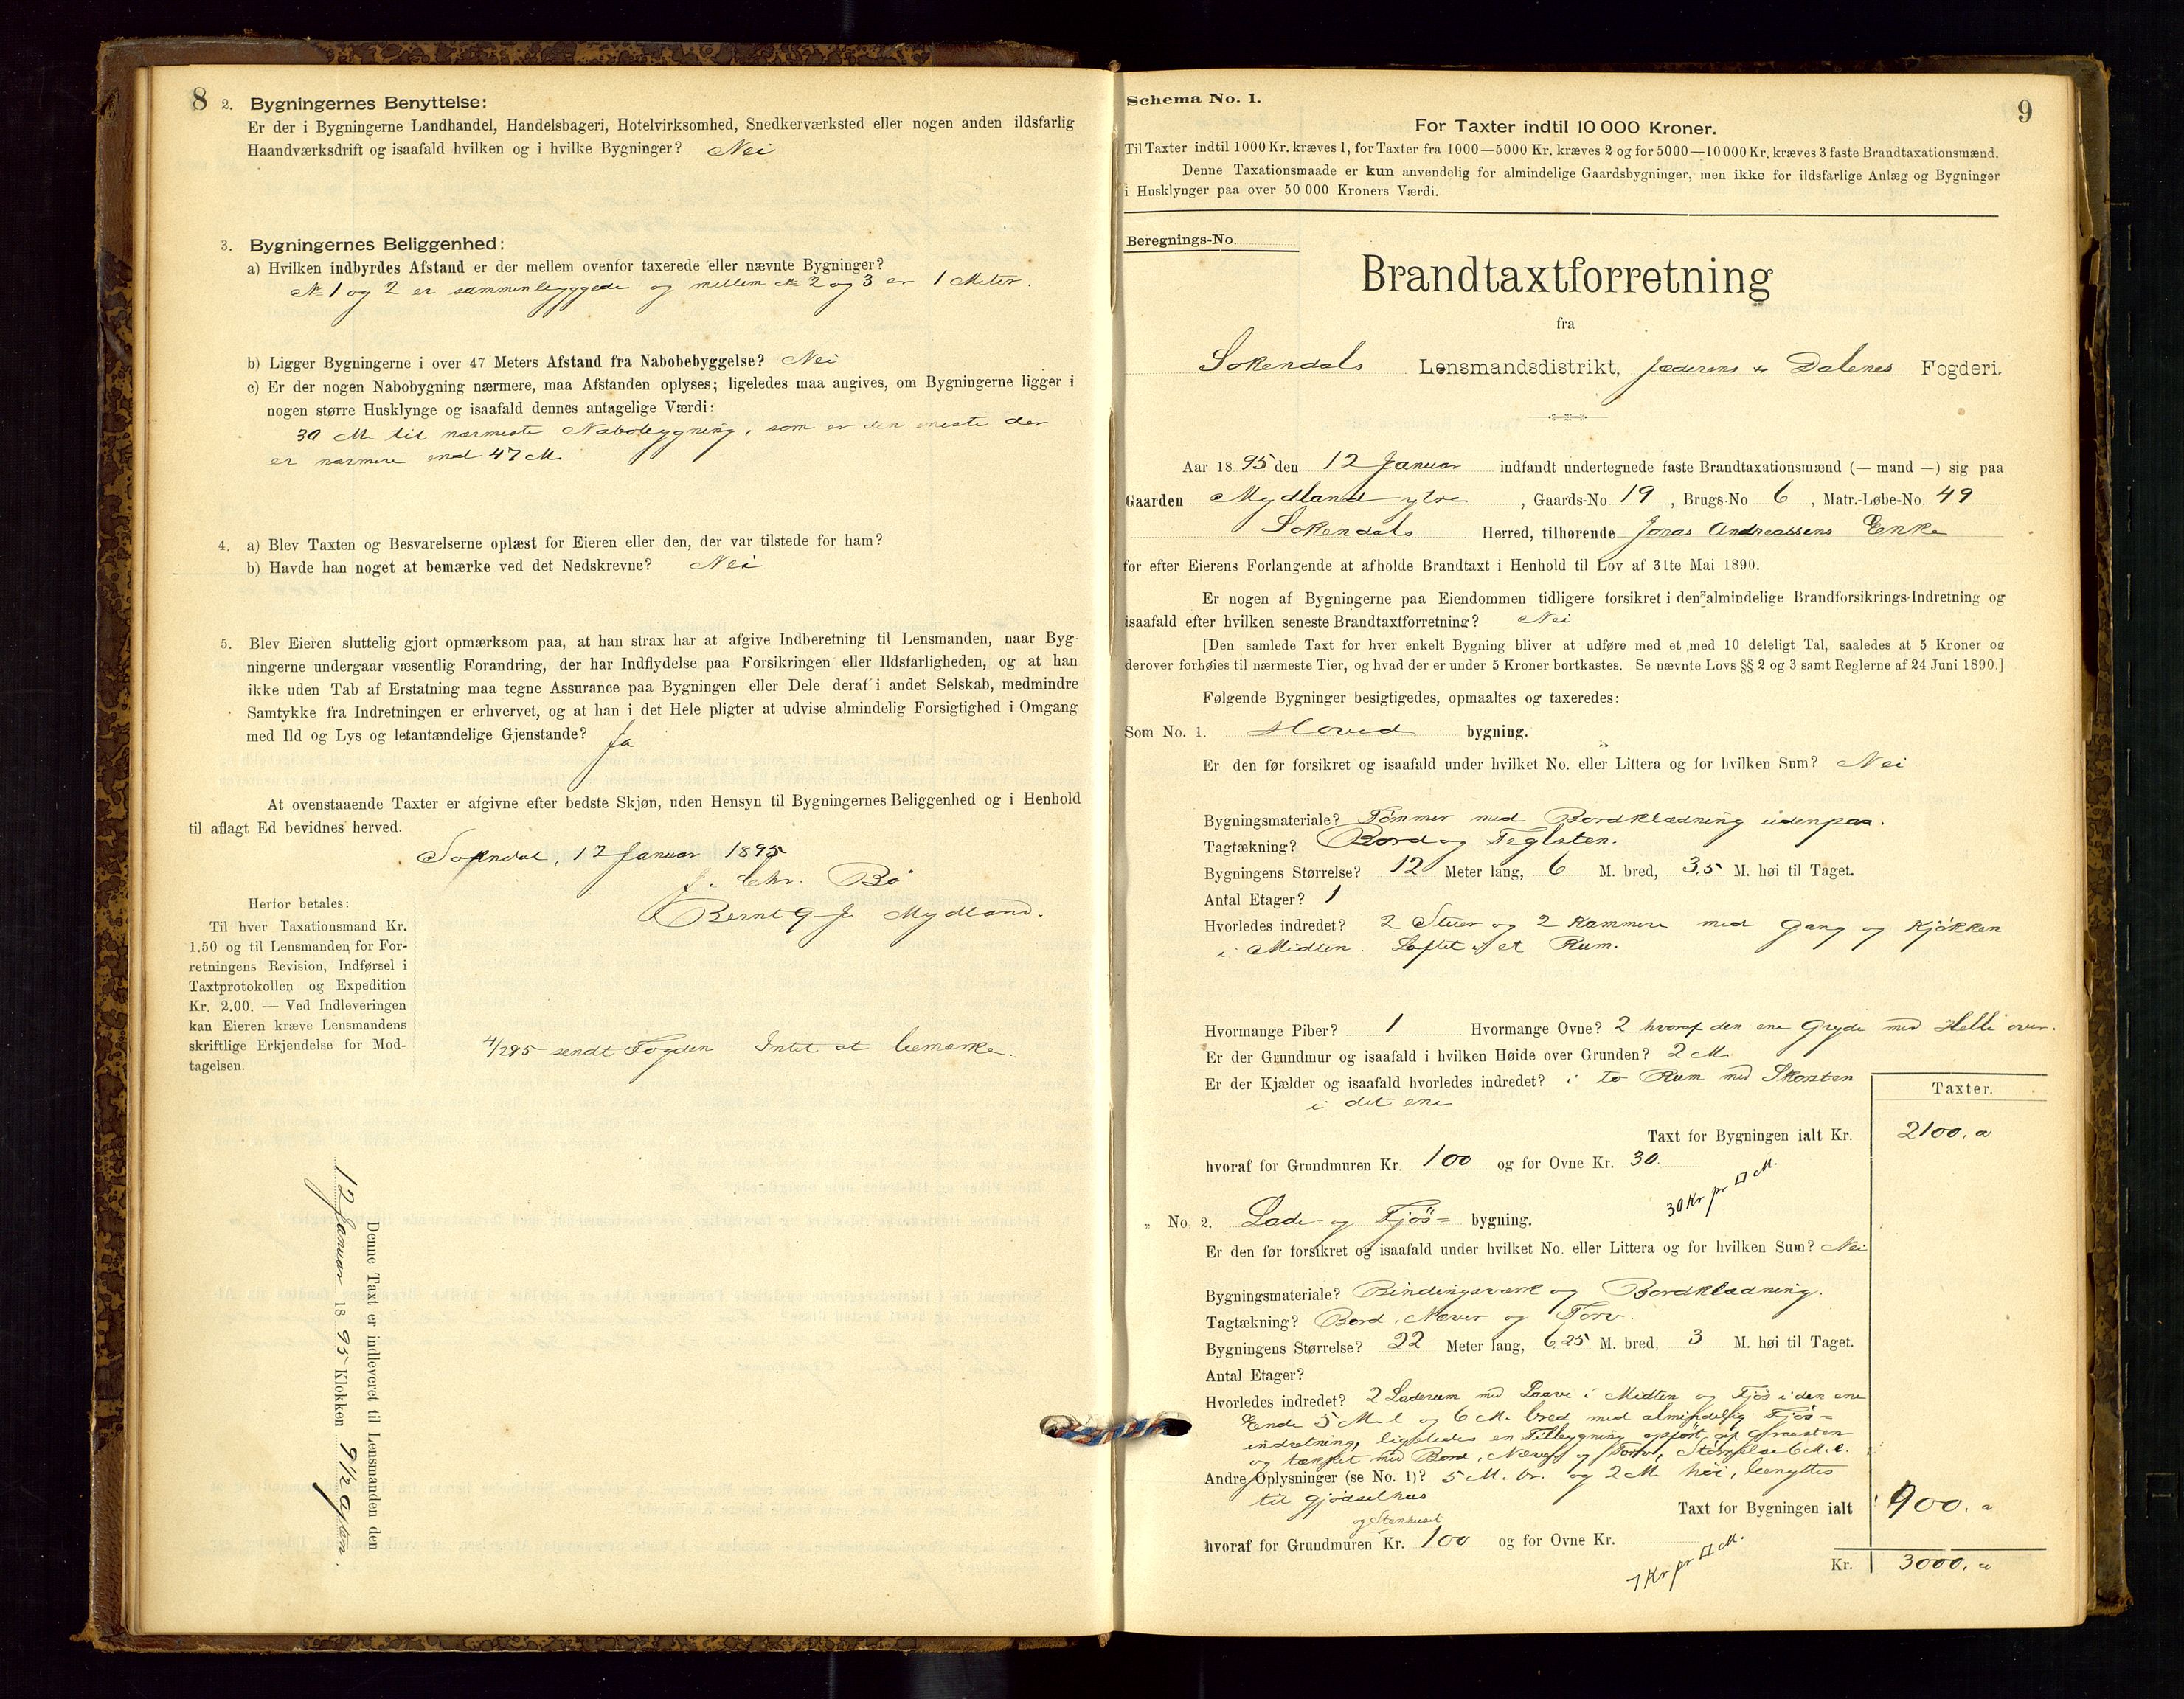 8
2. Bygningernes Benyttelse:
Er der i Bygningerne Landhandel, Handelsbageri, Hotelvirksomhed, Snedkerværksted eller nogen anden ildsfarlig
Haandværksdrift og isaafald hvilken og i hvilke Bygninger? Nei
3. Bygningernes Beliggenhed:
a) Hvilken indbyrdes Afstand er der mellem ovenfor taxerede eller nævnte Bygninger?
No 1 og 2 er sammenbyggede og mellem No 2 og 3 er 1 Meter.
b) Ligger Bygningerne i over 47 Meters Afstand fra Nabobebyggelse? Nei
c) Er der nogen Nabobygning nærmere, maa Afstanden oplyses; ligeledes maa angives, om Bygningerne ligger i
nogen større Husklynge og isaafald dennes antagelige Værdi:
30 M. til nærmeste Nabobygning, som er den eneste der
er nærmere end 47 M.
4. a) Blev Taxten og Besvarelserne oplæst for Eieren eller den, der var tilstede for ham?
b) Havde han noget at bemærke ved det Nedskrevne? Nei
5. Blev Eieren sluttelig gjort opmærksom paa, at han strax har at afgive Indberetning til Lensmanden, naar Byg-
ningerne undergaar væsentlig Forandring, der har Indflydelse paa Forsikringen eller Ildsfarligheden, og at han
ikke uden Tab af Erstatning maa tegne Assurance paa Bygningen eller Dele deraf i andet Selskab, medmindre
Samtykke fra Indretningen er erhvervet, og at han i det Hele pligter at udvise almindelig Forsigtighed i Omgang
med Ild og Lys og letantændelige Gjenstande? Ja
At ovenstaaende Taxter er afgivne efter bedste Skjøn, uden Hensyn til Bygningernes Beliggenhed og i Henhold
til aflagt Ed bevidnes herved.
12 Januar 1895
J. Chr. Bø
Bernt Mydland.
Herfor betales:
Til hver Taxationsmand Kr.
1.50 og til Lensmanden for For-
retningens Revision, Indførsel i
Taxtprotokollen og Expedition
Kr. 2.00. — Ved Indleveringen
kan Eieren kræve Lensmandens
skriftlige Erkjendelse for Mod-
tagelsen.
4/2 95 sendt Fogden Intet at bemærke.
Denne Taxt er indleveret til Lensmanden den
12 Januar 1895 Klokken 9 1/2 Aften.
9
Schema No. 1.
For Taxter indtil 10 000 Kroner.
Til Taxter indtil 1000 Kr. kræves 1, for Taxter fra 1000—5000 Kr. kræves 2 og for 5000—10000 Kr. kræves 3 faste Brandtaxationsmænd.
Denne Taxationsmaade er kun anvendelig for almindelige Gaardsbygninger, men ikke for ildsfarlige Anlæg og Bygninger
i Husklynger paa over 50 000 Kroners Værdi.
Beregnings-No.
Brandtaxtforretning
fra
Sokendals Lensmandsdistrikt, Jæderens & Dalenes Fogderi.
Aar 1895 den 12 Januar indfandt undertegnede faste Brandtaxationsmænd (— mand —) sig paa
Gaarden Mydland ytre, Gaards-No 19, Brugs-No 6, Matr.-Løbe-No. 49
Sokendals Herred, tilhørende Jonas Andreassens Enke
for efter Eierens Forlangende at afholde Brandtaxt i Henhold til Lov af 31te Mai 1890.
Er nogen af Bygningerne paa Eiendommen tidligere forsikret i den almindelige Brandforsikrings-Indretning og
isaafald efter hvilken seneste Brandtaxtforretning? Nei
[Den samlede Taxt for hver enkelt Bygning bliver at udføre med et med 10 deleligt Tal, saaledes at 5 Kroner og
derover forhøies til nærmeste Tier, og hvad der er under 5 Kroner bortkastes. Se nævnte Lovs §§ 2 og 3 samt Reglerne af 24 Juni 1890.]
Følgende Bygninger besigtigedes, opmaaltes og taxeredes:
Som No. 1. Hoved bygning.
Er den før forsikret og isaafald under hvilket No. eller Littera og for hvilken Sum? Nei
Bygningsmateriale? Tømmer med Bordklædning udenpaa.
Tagtækning? Bord og Teglsten.
Bygningens Størrelse? 12 Meter lang, 6 M. bred, 3,5 M. høi til Taget.
Antal Etager? 1
Hvorledes indredet? 2 Stuer og 2 Kammere med Gang og Kjøkken
i Midten. Loftet i et Rum.
Hvormange Piber? 1 Hvormange Ovne? 2 hvoraf den ene Gryde med Helle over.
Er der Grundmur og isaafald i hvilken Høide over Grunden? 2 M.
Er der Kjælder og isaafald hvorledes indredet? i to Rum med Skorsten
i det ene
Taxter.
Taxt for Bygningen ialt Kr. 2100.
hvoraf for Grundmuren Kr. 100 og for Ovne Kr. 30.
30 Kr pr □ M.
" No. 2. Lade- og Fjøs- bygning.
Er den før forsikret og isaafald under hvilket No. eller Littera og for hvilken Sum? Nei
Bygningsmateriale? Bindingsværk og Bordklædning.
Tagtækning? Bord, Næver og Torv.
Bygningens Størrelse? 22 Meter lang, 6,25 M. bred, 3 M. høi til Taget.
Antal Etager?
Hvorledes indredet? 2 Laderum med Laave i Midten og Fjøs i den ene
Ende 5 M. l og 6 M. bred med almindelig Fjøs-
indretning, ligeledes en Tilbygning opført af Graasten
og tækket med Bord, Næver og Torv, Størrelse 6 M. l.
Andre Oplysninger (se No. 1)? 5 M. br. og 2 M høi, benyttes
til Gjødselhus
Taxt for Bygningen ialt 900.
og Stenhuset
hvoraf for Grundmuren Kr. 100 og for Ovne Kr.
7 Kr pr □ M.
Kr. 3000.